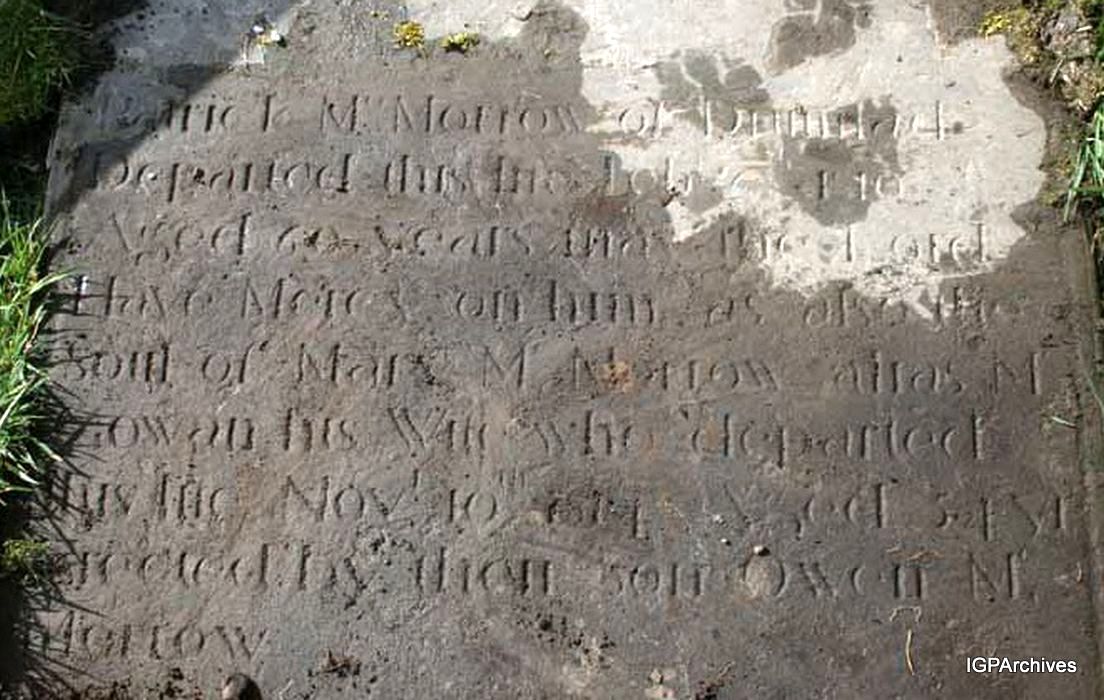 Patrick Mc Morrow of
Departed this life Feb
Aged 60 years may the Lord
Have Mercy on him as also the
Soul of Mary Mc Morrow alias Mc
Gowan his Wife who departed
this life Novr 10th Aged 54 yr
Erected by their son Owen Mc
Morrow
IGPArchives